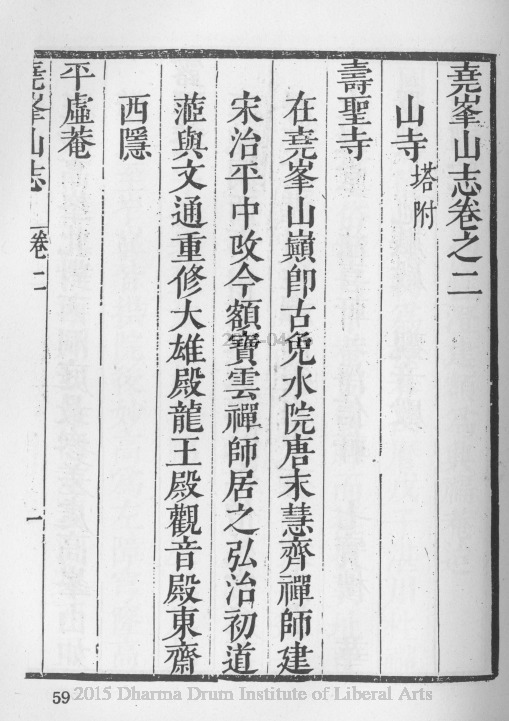 堯峯山志卷之二
山寺塔附
壽聖寺
在堯峯山巔卽古免水院唐末慧齊禪師建
宋治平中改今額寶雲禪師居之弘治初道
蒞與文通重修大雄殿龍王殿觀音殿東齋
西隱
平虛菴
堯峯山志 卷二 一
59 2015 Dharma Drum Institute of Liberal Arts